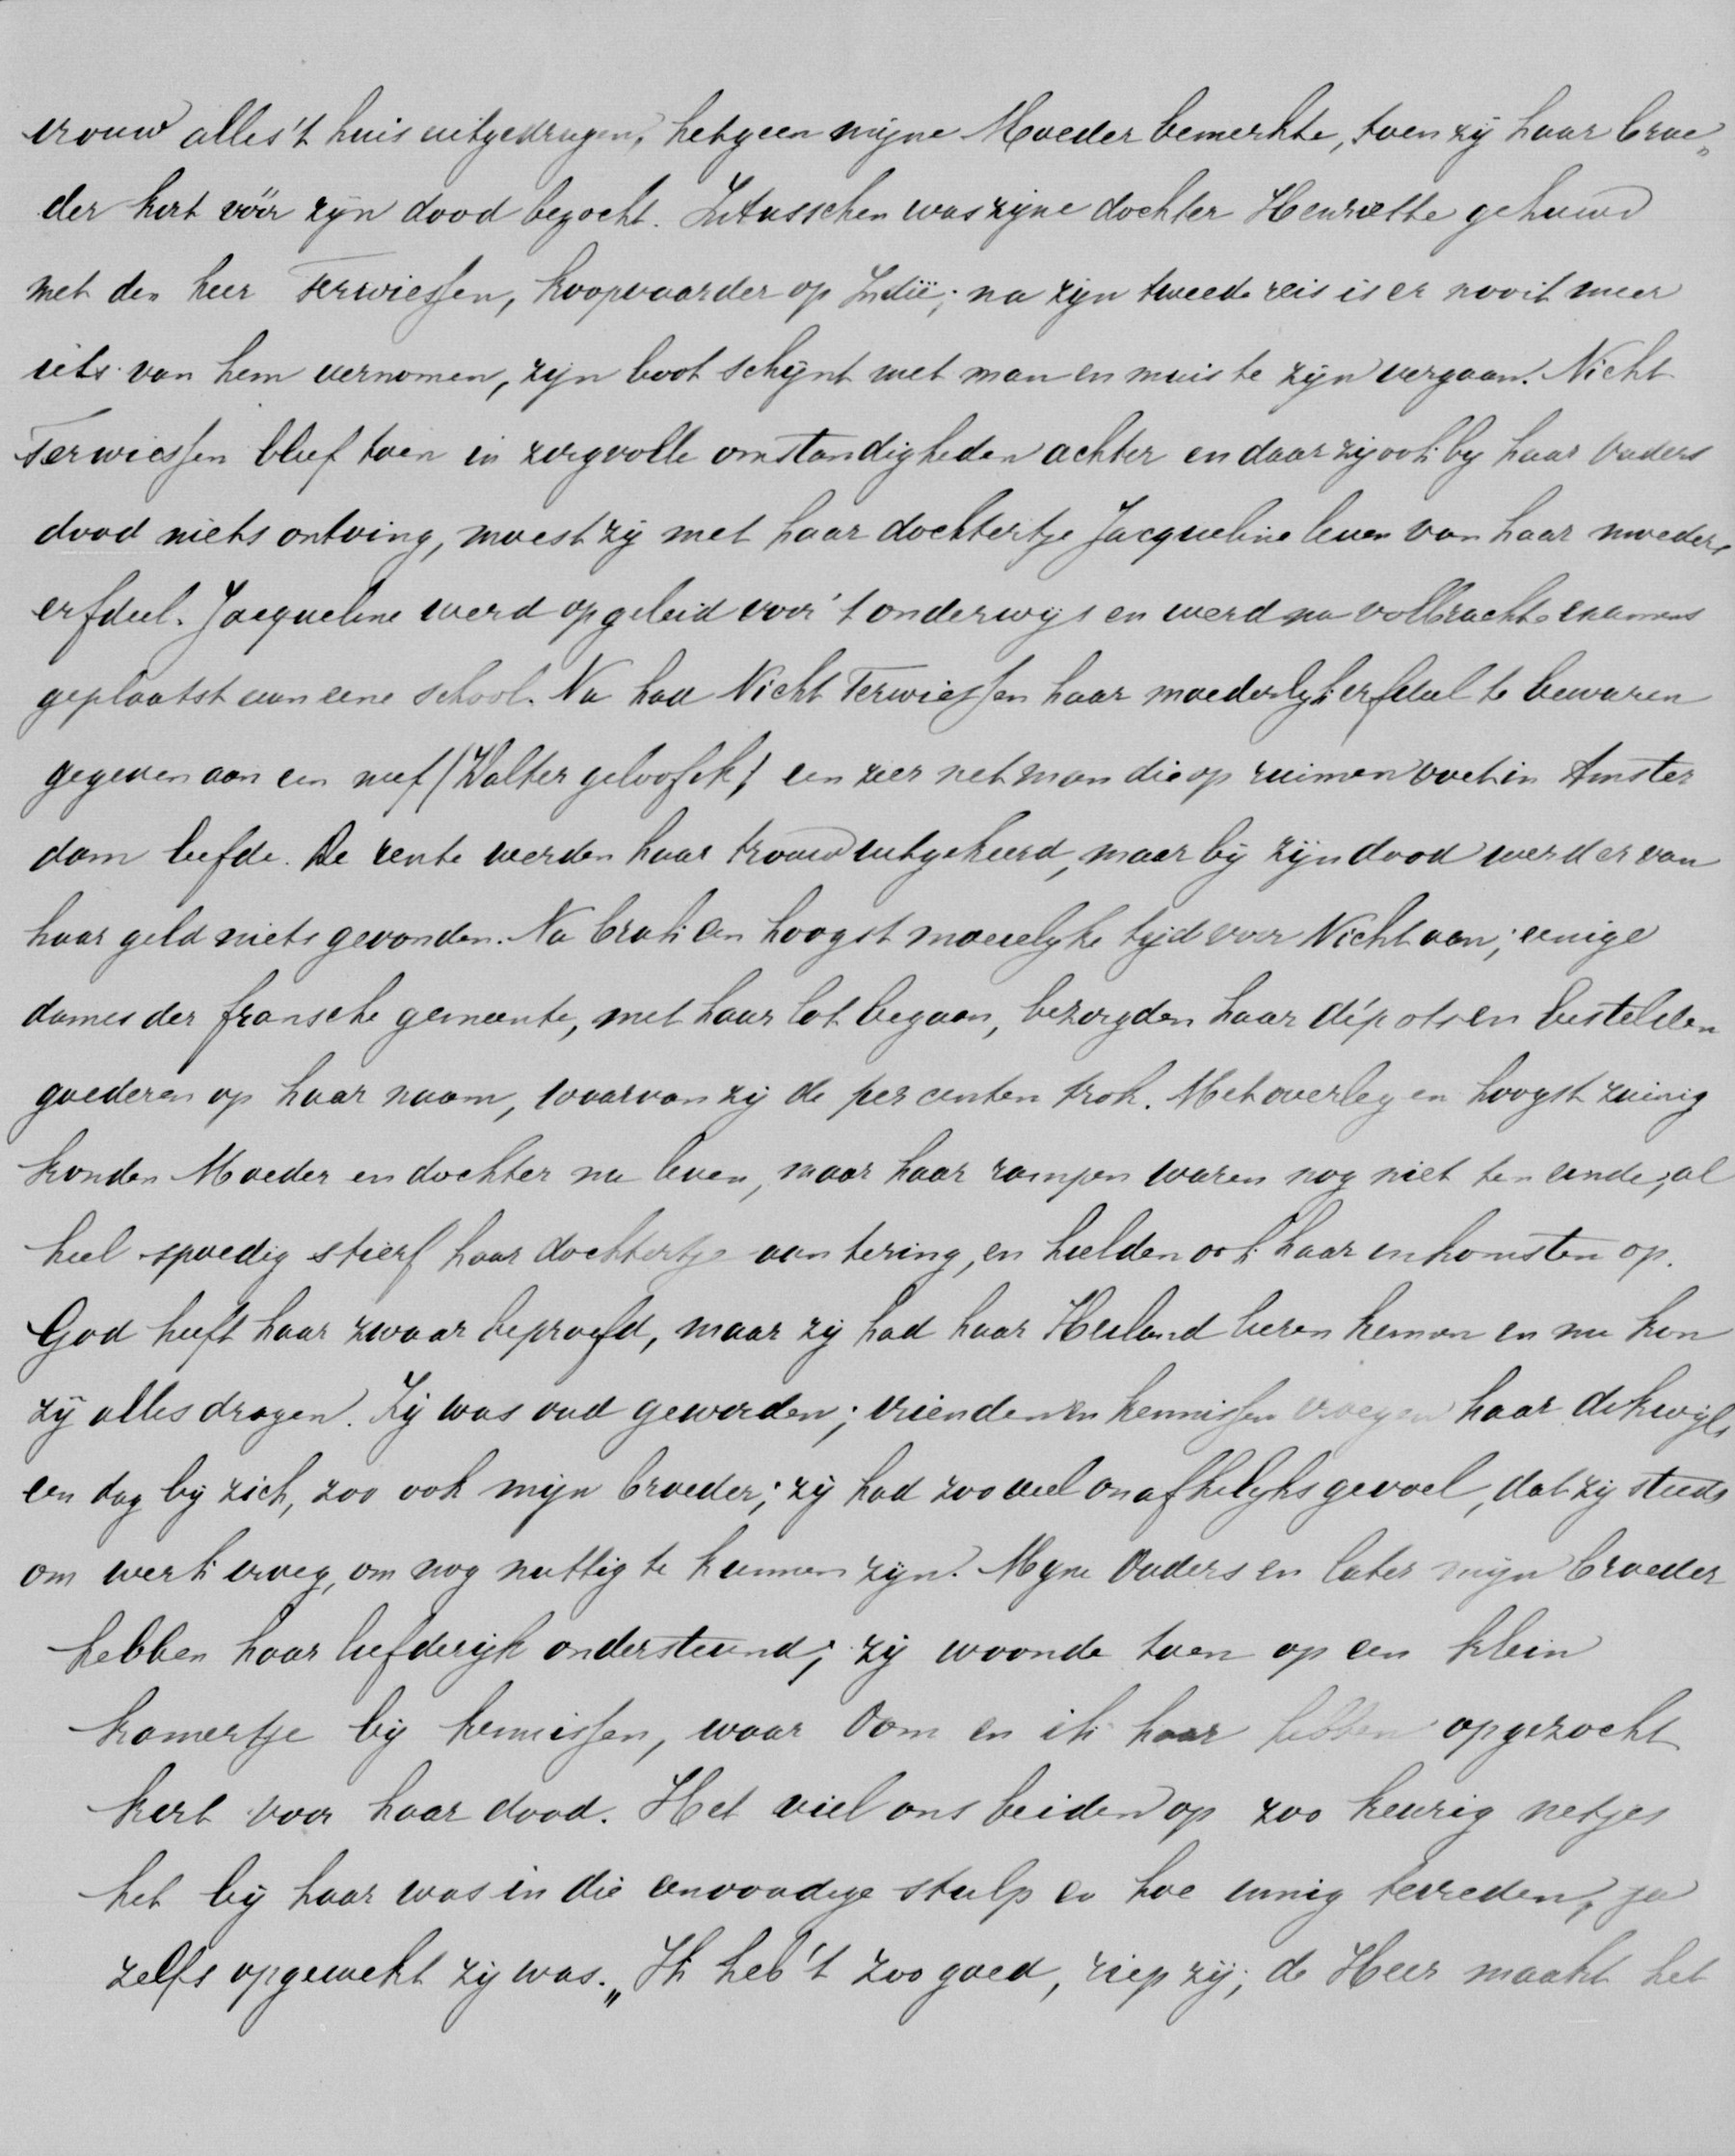 vrouw alles 't huis uitgedragen, hetgeen mijne Moeder bemerkte, toen zij haar broe„
der kort vóór zijn dood bezocht. Intusschen was zijne dochter Henriette gehuwd
met den heer Terwiessen, koopvaarder op Indië; na zijn tweede reis is er nooit meer
iets van hem vernomen, zijn boot schijnt met man en muis te zijn vergaan. Nicht
Terwiessen bleef toen in zorgvolle omstandigheden achter en daar zij ook bij haar Vaders
dood niets ontving, moest zij met haar dochtertje Jacqueline leven van haar moeders
erfdeel. Jacqueline werd opgeleid voor 't onderwijs en werd na volbrachte examens
geplaatst aan eene school. Nu had Nicht Terwiessen haar moederlijk erfdeel te bewaren
gegeven aan een neef (Walter geloof ik) een zeer net man die op ruimen voet in Amster
dam leefde. De rente werden haar trouw uitgekeerd, maar bij zijn dood werd er van
haar geld niets gevonden. Nu brak een hoogst moeielijke tijd voor Nicht aan; eenige
dames der fransche gemeente, met haar lot begaan, bezorgden haar dépots en bestelden
goederen op haar naam, waarvan zij de percenten trok. Met overleg en hoogst zuinig
konden Moeder en dochter nu leven, maar haar rampen waren nog niet ten einde, al
heel spoedig stierf haar dochtertje aan tering, en hielden ook haar inkomsten op.
God heeft haar zwaar beproefd, maar zij had haar Heiland leeren kennen en nu kon
zij alles dragen. Zij was oud geworden; vrienden en kennissen vroegen haar dikwijls
een dag bij zich, zoo ook mijn broeder; zij had zooveel onafhelijksgevoel, dat zij steeds
om werk vroeg, om nog nuttig te kunnen zijn. Mijne Ouders en later mijn broeder
hebben haar liefderijk ondersteund; zij woonde toen op een klein
kamertje bij kennissen, waar Oom en ik haar hebben opgezocht
kort voor haar dood. Het viel ons beiden op zoo keurig netjes
het bij haar was in die eenvoudige stulp en hoe innig tevreden, ja
zelfs opgewekt zij was. „Ik heb 't zoo goed, riep zij; de Heer maakt het